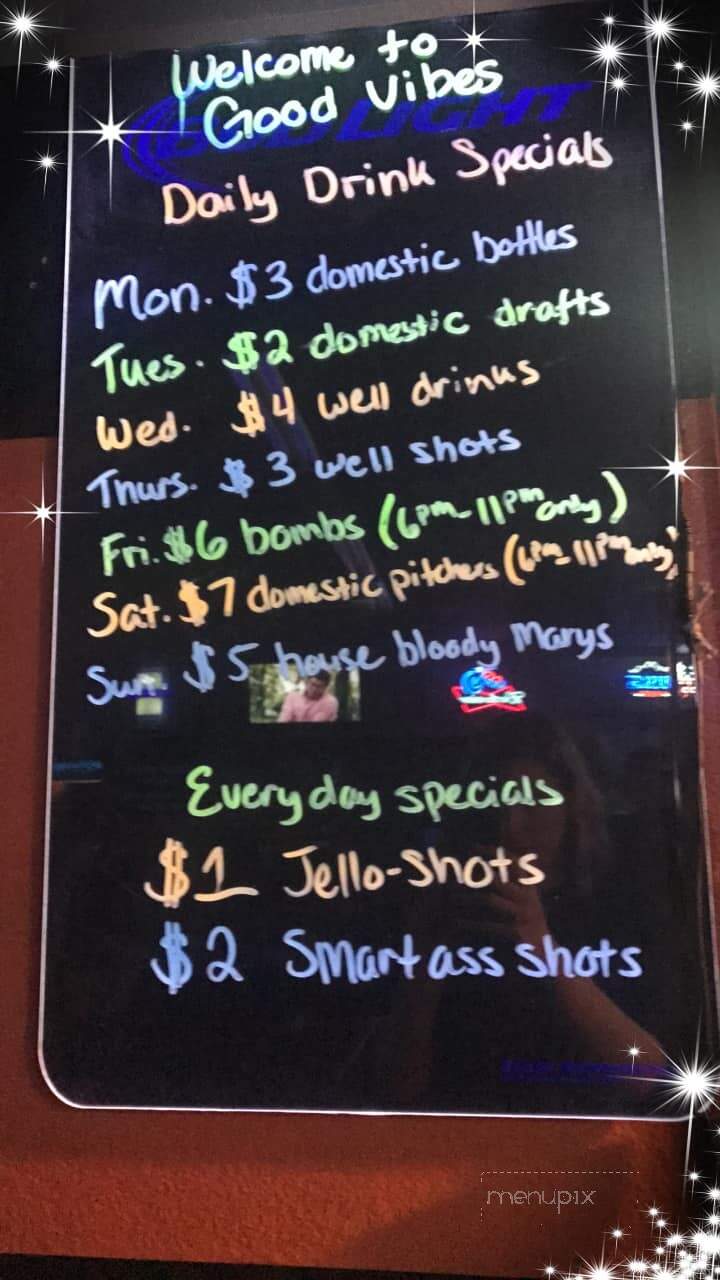 Welcome to
Good Vibes
BUD LIGHT
Daily Drink Specials
Mon. $3 domestic bottles
Tues. $2 domestic drafts
Wed. $4 well drinks
Thurs. $3 well shots
Fri. $6 bombs (6pm-11pm only)
Sat. $7 domestic pitchers (6pm-11pm only)
Sun. $5 house bloody Marys
Everyday specials
$1 Jello-Shots
$2 Smartass shots
menupix